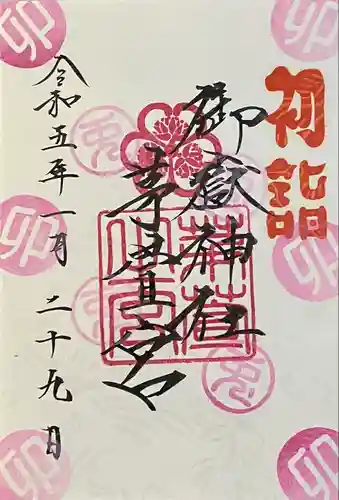 初詣
御嶽神社
茅田宮
令和五年一月二十九日
卯
卯
卯
卯
卯
卯
卯
兎
兎
兎